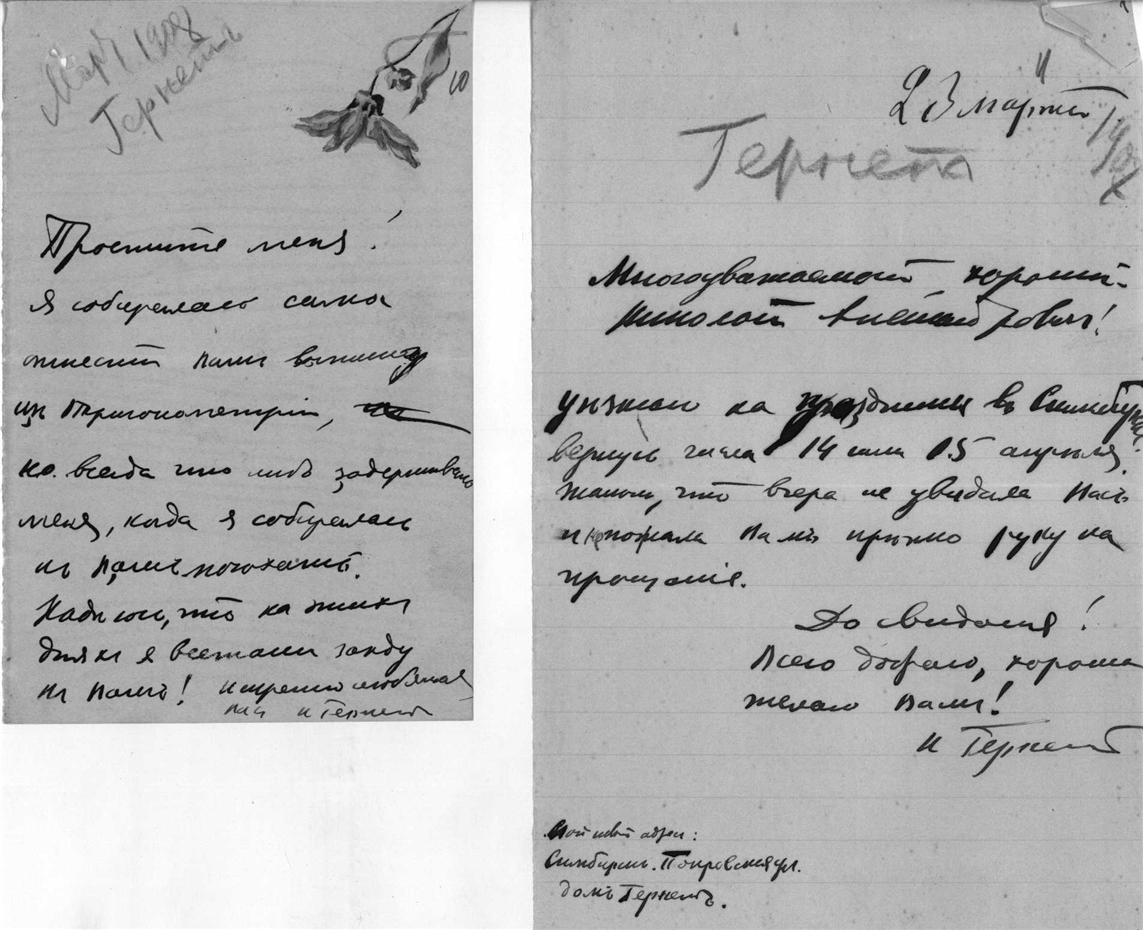 Март 1908
Гернетъ
10
Простите меня!
Я собиралась сама
отнести Вамъ выписку
изъ Тригонометріи,
но всегда что либо задерживало
меня, когда я собиралась
къ Вамъ
Надѣюсь, что на этихъ
дняхъ я всетаки зайду
къ Вамъ! Искренно любящая
Васъ Н Гернетъ
11
23 марта
Гернетъ
Многоуважаемый, хорошій
Николай
уѣзжаю на праздники въ Симбирскъ,
вернусь числа 14 или 15 апрѣля.
Жалѣю, что вчера не увидала Васъ
и не пожала Вамъ крѣпко руку на
прощаніе.
До свиданія!
Всего добраго, хорошаго
желаю Вамъ!
Н Гернетъ
Мой адресъ:
Симбирскъ. Покровская ул.
домъ Гернетъ.